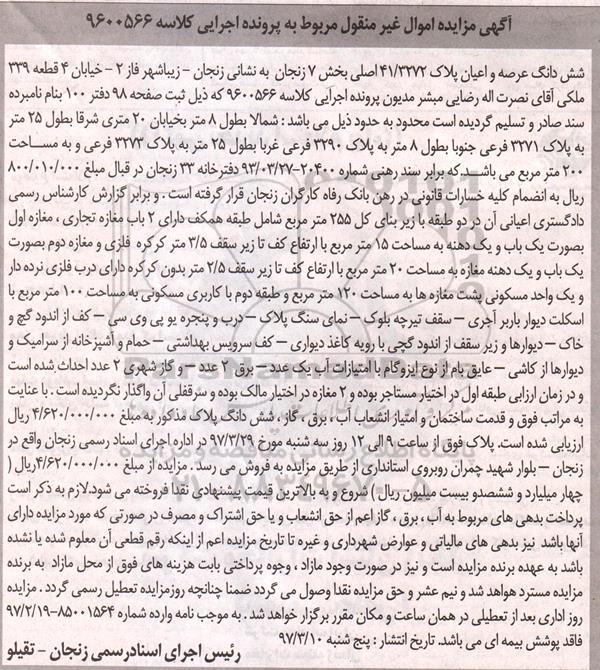 آگهی مزایده اموال غیر منقول مربوط به پرونده اجرایی کلاسه ۹۶۰۰۵۶۶
شش دانگ عرصه و اعیان پلاک ۴۱/۳۲۷۲ اصلی بخش ۷ زنجان به نشانی زنجان – زیباشهر فاز ۲ – خیابان ۴ قطعه ۳۳۹
ملکی آقای نصرت اله رضایی مبشر مدیون پرونده اجرایی کلاسه ۹۶۰۰۵۶۶ که ذیل ثبت صفحه ۹۸ دفتر ۱۰۰ بنام نامبرده
سند صادر و تسلیم گردیده است محدود به حدود ذیل می باشد : شمالا بطول ۸ متر بخیابان ۲۰ متری شرقا بطول ۲۵ متر
به پلاک ۳۲۷۱ فرعی جنوبا بطول ۸ متر به پلاک ۳۲۹۰ فرعی غربا بطول ۲۵ متر به پلاک ۳۲۷۳ فرعی و به مساحت
۲۰۰ متر مربع می باشد که برابر سند رهنی شماره ۲۰۴۰۰–۹۳/۰۳/۲۷ دفترخانه ۳۳ زنجان در قبال مبلغ ۸۰۰/۰۱۰/۰۰۰
ریال به انضمام کلیه خسارات قانونی در رهن بانک رفاه کارگران زنجان قرار گرفته است . و برابر گزارش کارشناس رسمی
دادگستری اعیانی آن در دو طبقه با زیر بنای کل ۲۵۵ متر مربع شامل طبقه همکف دارای ۲ باب مغازه تجاری ، مغازه اول
بصورت یک باب و یک دهنه به مساحت ۱۵ متر مربع با ارتفاع کف تا زیر سقف ۳/۵ متر کرکره فلزی و مغازه دوم بصورت
یک باب و یک دهنه مغازه به مساحت ۲۰ متر مربع با ارتفاع کف تا زیر سقف ۲/۵ متر بدون کرکره دارای درب فلزی نرده دار
و یک واحد مسکونی پشت مغازه ها به مساحت ۱۲۰ متر مربع و طبقه دوم با کاربری مسکونی به مساحت ۱۰۰ متر مربع با
اسکلت دیوار باربر آجری – سقف تیرچه بلوک – نمای سنگ پلاک – درب و پنجره یو پی وی سی – کف از اندود گچ و
خاک – دیوارها و زیر سقف از اندود گچی با رویه کاغذ دیواری – کف سرویس بهداشتی – حمام و آشپزخانه از سرامیک و
دیوارها از کاشی – عایق بام از نوع ایزوگام با امتیازات آب یک عدد – برق ۳ عدد – و گاز شهری ۲ عدد احداث شده است
و در زمان ارزیابی طبقه اول در اختیار مستاجر بوده و ۲ مغازه در اختیار مالک بوده و سرقفلی آن واگذار نگردیده است . با عنایت
به مراتب فوق و قدمت ساختمان و امتیاز انشعاب آب ، برق ، گاز ، شش دانگ پلاک مذکور به مبلغ ۴/۶۲۰/۰۰۰/۰۰۰ ریال
ارزیابی شده است. پلاک فوق از ساعت ۹ الی ۱۲ روز سه شنبه مورخ ۹۷/۳/۲۹ در اداره اجرای اسناد رسمی زنجان واقع در
زنجان – بلوار شهید چمران روبروی استانداری از طریق مزایده به فروش می رسد . مزایده از مبلغ ۴/۶۲۰/۰۰۰/۰۰۰ریال (
چهار میلیارد و ششصدو بیست میلیون ریال ) شروع و به بالاترین قیمت پیشنهادی نقدا فروخته می شود.لازم به ذکر است
پرداخت بدهی های مربوط به آب ، برق ، گاز اعم از حق انشعاب و یا حق اشتراک و مصرف در صورتی که مورد مزایده دارای
آنها باشد نیز بدهی های مالیاتی و عوارض شهرداری و غیره تا تاریخ مزایده اعم از اینکه رقم قطعی آن معلوم شده یا نشده
باشد به عهده برنده مزایده است و نیز در صورت وجود مازاد ، وجوه پرداختی بابت هزینه های فوق از محل مازاد به برنده
مزایده مسترد خواهد شد و نیم عشر و حق مزایده نقدا وصول می گردد ضمنا چنانچه روزمزایده تعطیل رسمی گردد . مزایده
روز اداری بعد از تعطیلی در همان ساعت و مکان مقرر برگزار خواهد شد . به موجب نامه وارده شماره ۸۵۰۰۱۵۶۴–۹۷/۲/۱۹
فاقد پوشش بیمه ای می باشد. تاریخ انتشار : پنج شنبه ۹۷/۳/۱۰
رئیس اجرای اسنادرسمی زنجان – تقیلو